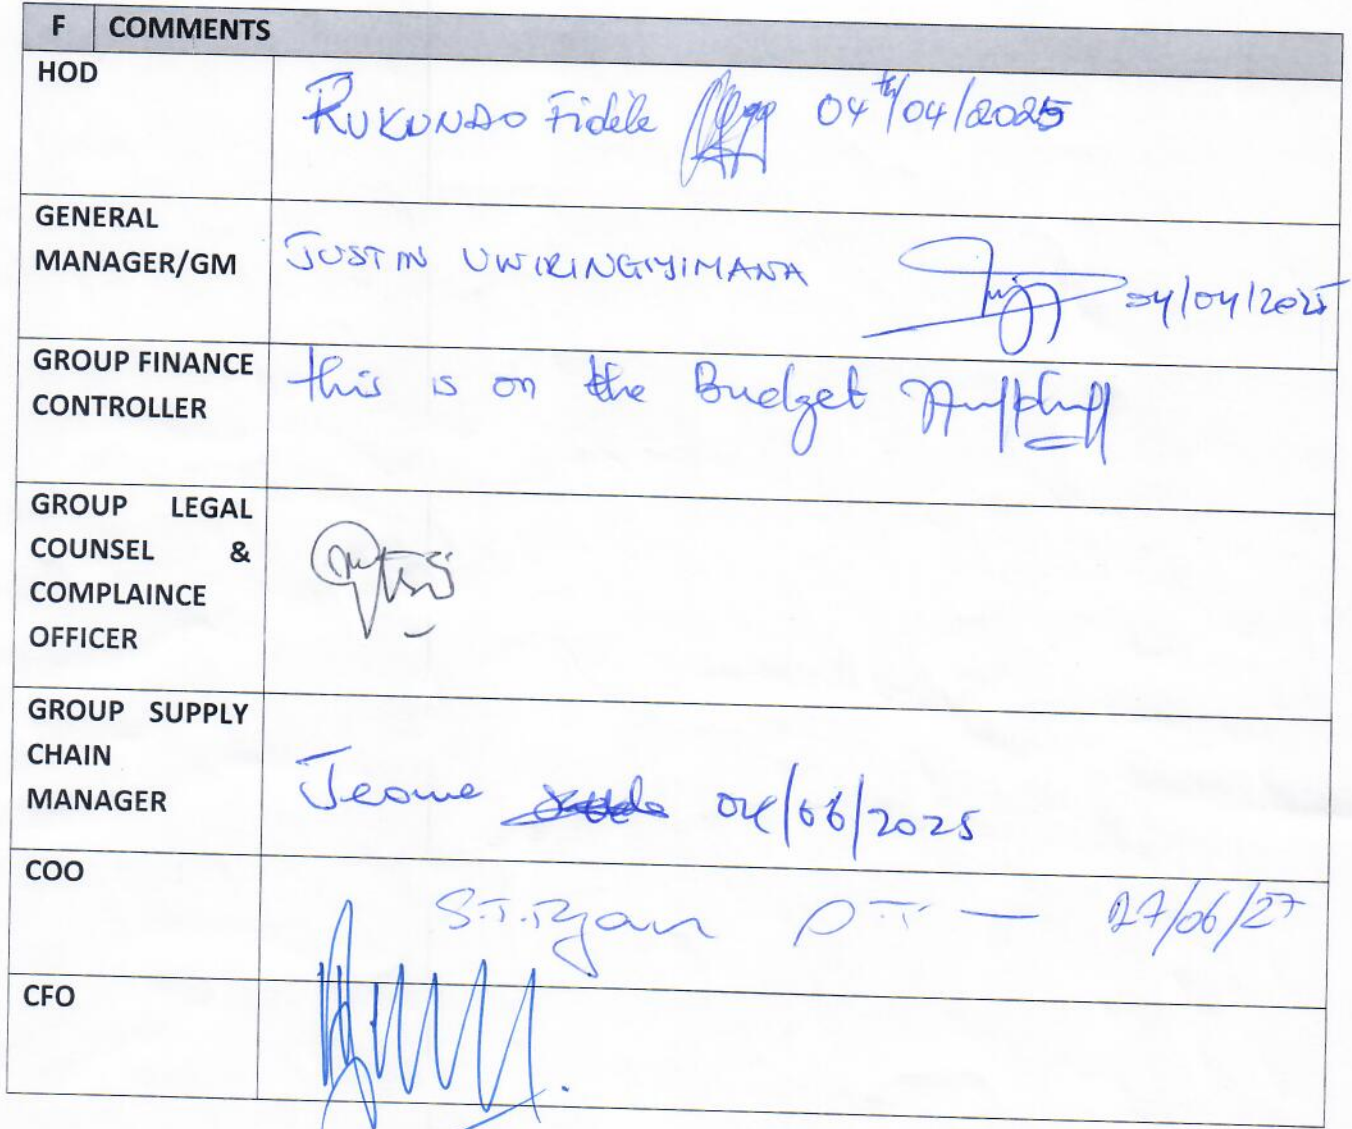 F COMMENTS
HOD
RUKUNDO Fidèle 04th/04/2025
GENERAL
MANAGER/GM
JUSTIN UWIRINGIYIMANA 04/04/2025
GROUP FINANCE
CONTROLLER
this is on the Budget
GROUP LEGAL
COUNSEL &
COMPLAINCE
OFFICER
GROUP SUPPLY
CHAIN
MANAGER
04/06/2025
COO
S.T.Ryan 27/06/27
CFO